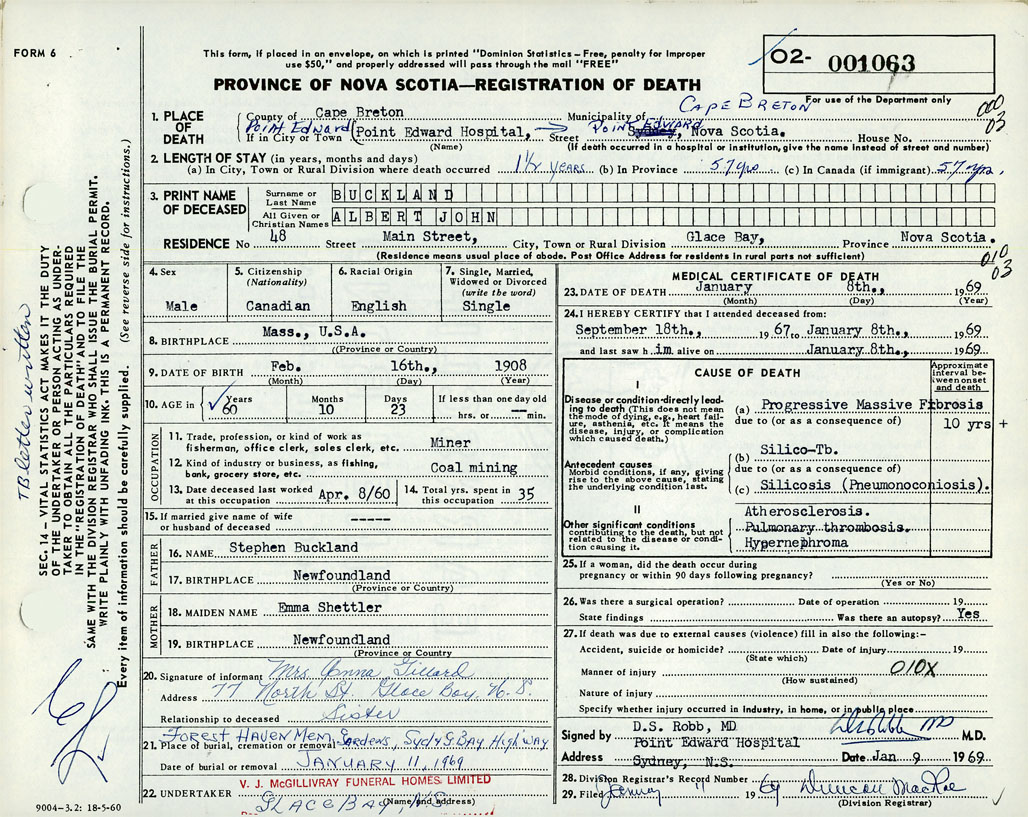 FORM 6
This form, if placed in an envelope, on which is printed "Dominion Statistics—Free, penalty for improper
use $50," and properly addressed will pass through the mail "FREE"
PROVINCE OF NOVA SCOTIA—REGISTRATION OF DEATH
02- 001063
For use of the Department only
000
03
1. PLACE OF DEATH
County of Cape Breton Municipality of CAPE BRETON
Point Edward
If in City or Town (Point Edward Hospital, Street POINT EDWARD Sydney, Nova Scotia. House No.
(Name) (If death occurred in a hospital or institution, give the name instead of street and number)
2. LENGTH OF STAY (in years, months and days)
(a) In City, Town or Rural Division where death occurred 1½ years (b) In Province 57 yrs (c) In Canada (if immigrant) 57 yrs.
3. PRINT NAME OF DECEASED
Surname or Last Name BUCKLAND
All Given or Christian Names ALBERT JOHN
RESIDENCE No 48 Street Main Street, City, Town or Rural Division Glace Bay, Province Nova Scotia.
(Residence means usual place of abode. Post Office Address for residents in rural parts not sufficient)
010
03
4. Sex
Male
5. Citizenship
(Nationality)
Canadian
6. Racial Origin
English
7. Single, Married, Widowed or Divorced
(write the word)
Single
8. BIRTHPLACE Mass., U.S.A.
((Province or Country)
9. DATE OF BIRTH Feb. 16th., 1908
(Month) (Day) (Year)
10. AGE in Years 60 Months 10 Days 23 If less than one day old
hrs. or --- min.
OCCUPATION
11. Trade, profession, or kind of work as
fisherman, office clerk, sales clerk, etc. Miner
12. Kind of industry or business, as fishing,
bank, grocery store, etc. Coal mining
13. Date deceased last worked
at this occupation Apr. 8/60
14. Total yrs. spent in
this occupation 35
15. If married give name of wife
or husband of deceased -----
FATHER
16. NAME Stephen Buckland
17. BIRTHPLACE Newfoundland
(Province or Country)
MOTHER
18. MAIDEN NAME Emma Shettler
19. BIRTHPLACE Newfoundland
(Province or Country
20. Signature of informant Mrs. Anna Gillard
Address 77 North St. Glace Bay, N.S.
Relationship to deceased Sister
FOREST HAVEN MEM. GARDENS, SYD & G. BAY HIGHWAY
21. Place of burial, cremation or removal
Date of burial or removal JANUARY 11, 1969
V. J. McGILLIVRAY FUNERAL HOMES LIMITED
22. UNDERTAKER GLACE BAY, N.S.
(Name and address)
9004-3.2: 18-5-60
MEDICAL CERTIFICATE OF DEATH
23. DATE OF DEATH January 8th., 1969
(Month) (Day) (Year)
24. I HEREBY CERTIFY that I attended deceased from:
September 18th., 1967 to January 8th., 1969
and last saw him alive on January 8th., 1969.
CAUSE OF DEATH
Approximate interval between onset and death
I
Disease or condition directly leading to death (This does not mean the mode of dying, e.g., heart failure, asthenia, etc. It means the disease, injury, or complication which caused death.)
(a) Progressive Massive Fibrosis
due to (or as a consequence of) 10 yrs +
Antecedent causes
Morbid conditions, if any, giving rise to the above cause, stating the underlying condition last.
(b) Silico-Tb.
due to (or as a consequence of)
(c) Silicosis (Pneumonoconiosis).
II
Other significant conditions
contributing to the death, but not related to the disease or condition causing it.
Atherosclerosis.
Pulmonary thrombosis.
Hypernephroma
25. If a woman, did the death occur during
pregnancy or within 90 days following pregnancy?
(Yes or No)
26. Was there a surgical operation? Date of operation 19
State findings Was there an autopsy? Yes
27. If death was due to external causes (violence) fill in also the following:–
Accident, suicide or homicide? Date of injury 19
(State which)
Manner of injury 010X
(How sustained)
Nature of injury
Specify whether injury occurred in industry, in home, or in public place
Signed by D.S. Robb, MD DS Robb MD M.D.
Address Point Edward Hospital
Sydney, N.S. Date Jan 9 1969
28. Division Registrar's Record Number
29. Filed January 11 1969 Duncan MacRae
(Division Registrar)
SEC. 14 – VITAL STATISTICS ACT MAKES IT THE DUTY
OF THE UNDERTAKER OR PERSON ACTING AS UNDER-
TAKER TO OBTAIN ALL THE PARTICULARS REQUIRED
IN THE "REGISTRATION OF DEATH" AND TO FILE THE
SAME WITH THE DIVISION REGISTRAR WHO SHALL ISSUE THE BURIAL PERMIT.
WRITE PLAINLY WITH UNFADING INK. THIS IS A PERMANENT RECORD.
Every item of information should be carefully supplied. (See reverse side for instructions.)
TB letter written